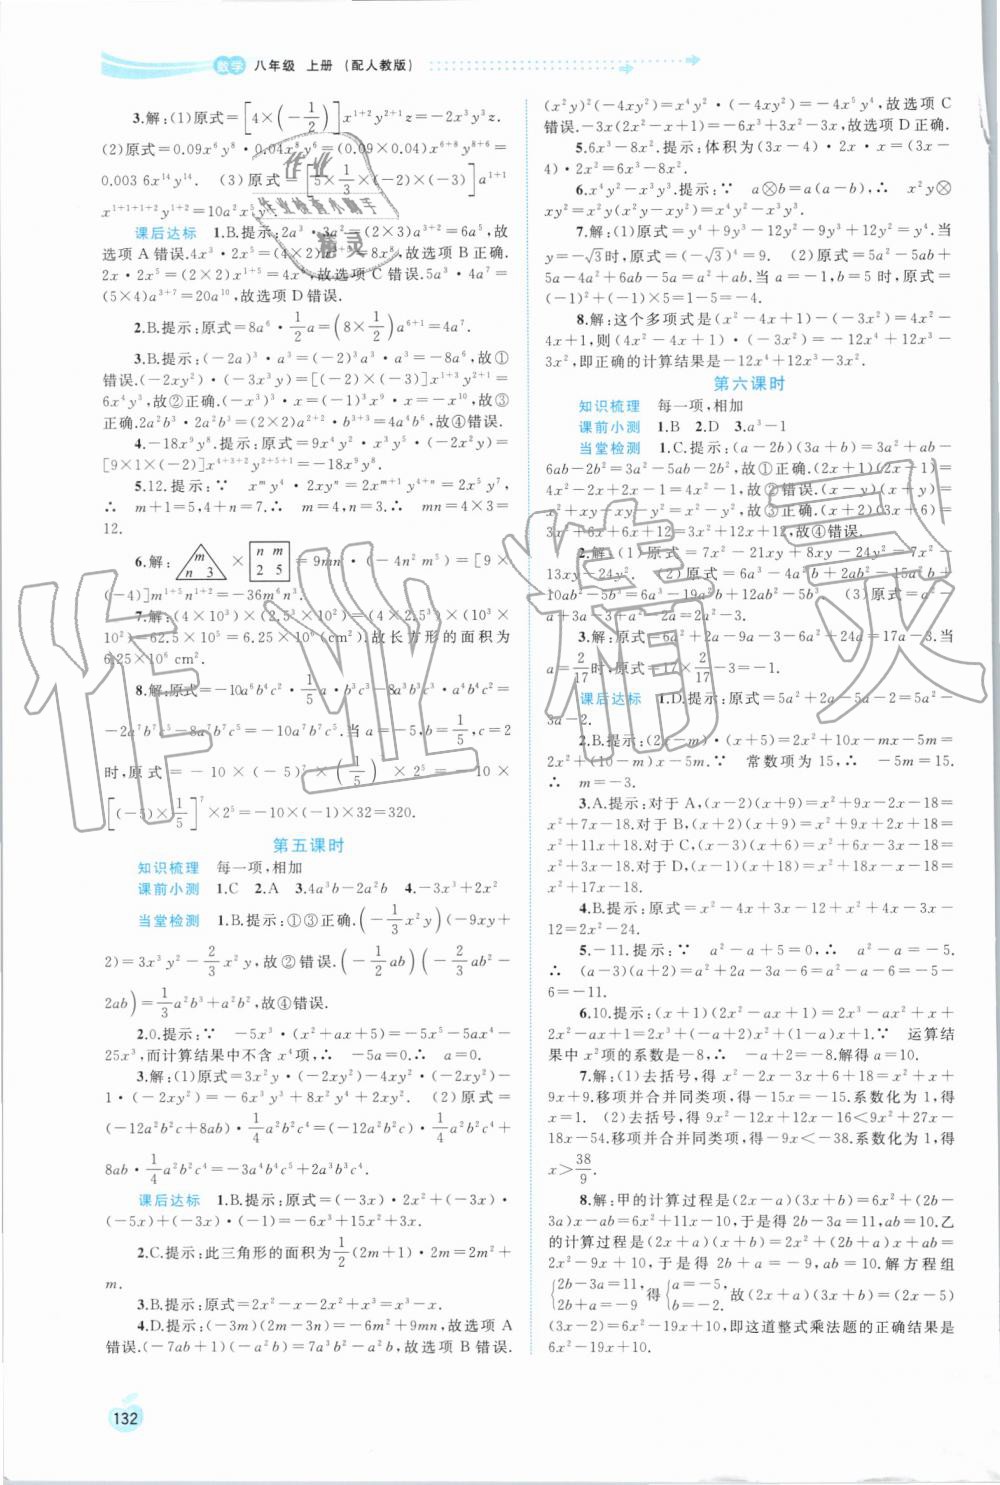 数学 八年级 上册 (配人教版)
3.解:(1)原式=[4×(-1/2)]x¹⁺²y²⁺¹z=-2x³y³z.
(2)原式=0.09x⁶y⁸·0.04x⁸y⁶=(0.09×0.04)x⁶⁺⁸y⁸⁺⁶=
0.003 6x¹⁴y¹⁴. (3)原式=[5×1/3×(-2)×(-3)]a¹⁺¹
课后达标 1.B.提示:2a³·3a²=(2×3)a³⁺²=6a⁵,故
选项A错误.4x³·2x⁵=(4×2)x³⁺⁵=8x⁸,故选项B正确.
2x·2x⁵=(2×2)x¹⁺⁵=4x⁶,故选项C错误.5a³·4a⁷=
(5×4)a³⁺⁷=20a¹⁰,故选项D错误.
2.B.提示:原式=8a⁶·1/2a=(8×1/2)a⁶⁺¹=4a⁷.
3.B.提示:(-2a)³·a³=(-8a³)·a³=-8a⁶,故①
错误.(-2xy²)·(-3x³y)=[(-2)×(-3)]x¹⁺³y²⁺¹=
6x⁴y³,故②正确.(-x³)³·x=(-x)⁹·x=-x¹⁰,故③
正确.2a²b³·2a²b³=(2×2)a²⁺²·b³⁺³=4a⁴b⁶,故④错误.
4.-18x⁹y⁸.提示:原式=9x⁴y²·x³y⁵·(-2x²y)=
[9×1×(-2)]x⁴⁺³⁺²y²⁺⁵⁺¹=-18x⁹y⁸.
5.12.提示:∵ xᵐy⁴·2xyⁿ=2xᵐ⁺¹y⁴⁺ⁿ=2x⁵y⁷,
∴ m+1=5,4+n=7.∴ m=4,n=3.∴ mn=4×3=
12.
6.解: m n 3 × n m 2 5 =9mn·(-4n²m⁵)=[9×
(-4)]m¹⁺⁵n¹⁺²=-36m⁶n³.
7.解:(4×10³)×(2.5×10³)=(4×2.5)×(10³×
10³)=62.5×10⁵=6.25×10⁶(cm²).故长方形的面积为
6.25×10⁶ cm².
8.解:原式=-10a⁶b⁴c²·1/5a·b³c³-8a³b³c³·a⁴b⁴c²=
-2a⁷b⁷c⁵-8a⁷b⁷c⁵=-10a⁷b⁷c⁵.当a=-5,b=1/5,c=2
时,原式=-10×(-5)⁷×(1/5)⁷×2⁵=-10×
[(-5)×1/5]⁷×2⁵=-10×(-1)×32=320.
第五课时
知识梳理 每一项,相加
课前小测 1.C 2.A 3.4a³b-2a²b 4.-3x³+2x²
当堂检测 1.B.提示:①③正确.(-1/3x²y)(-9xy+
2)=3x³y²-2/3x²y,故②错误.(-1/2ab)(2/3ab²-
2ab)=-1/3a²b³+a²b²,故④错误.
2.0.提示:∵ -5x³·(x²+ax+5)=-5x⁵-5ax⁴-
25x³,而计算结果中不含x⁴项,∴ -5a=0.∴ a=0.
3.解:(1)原式=3x²y·(-2xy²)-4xy²·(-2xy²)-
1·(-2xy²)=-6x³y³+8x²y⁴+2xy². (2)原式=
(-12a²b²c+8ab)·1/4a²b²c⁴=(-12a²b²c)·1/4a²b²c⁴+
8ab·1/4a²b²c⁴=-3a⁴b⁴c⁵+2a³b³c⁴.
课后达标 1.B.提示:原式=(-3x)·2x²+(-3x)·
(-5x)+(-3x)·(-1)=-6x³+15x²+3x.
2.C.提示:此三角形的面积为1/2(2m+1)·2m=2m²+
m.
3.B.提示:原式=2x²-x-2x²+x³=x³-x.
4.D.提示:(-3m)(2m-3n)=-6m²+9mn,故选项A
错误.(-7ab+1)(-a²b)=7a³b²-a²b,故选项B错误.
(x²y)²(-4xy²)=x⁴y²·(-4xy²)=-4x⁵y⁴,故选项C
错误.-3x(2x²-x+1)=-6x³+3x²-3x,故选项D正确.
5.6x³-8x².提示:体积为(3x-4)·2x·x=(3x-
4)·2x²=6x³-8x².
6.x⁴y²-x³y³.提示:∵ a⊗b=a(a-b),∴ x²y⊗
xy²=x²y(x²y-xy²)=x⁴y²-x³y³.
7.解:(1)原式=y⁴+9y³-12y²-9y³+12y²=y⁴.当
y=-√3时,原式=(-√3)⁴=9. (2)原式=5a²-5ab+
5a-4a²+6ab-5a=a²+ab.当a=-1,b=5时,原式=
(-1)²+(-1)×5=1-5=-4.
8.解:这个多项式是(x²-4x+1)-(-3x²)=4x²-
4x+1,则(4x²-4x+1)·(-3x²)=-12x⁴+12x³-
3x²,即正确的计算结果是-12x⁴+12x³-3x².
第六课时
知识梳理 每一项,相加
课前小测 1.B 2.D 3.a³-1
当堂检测 1.C.提示:(a-2b)(3a+b)=3a²+ab-
6ab-2b²=3a²-5ab-2b²,故①正确.(2x+1)(2x+1)=
4x²+2x+2x+1=4x²+4x+1,故②错误.(x-y)(x+y)=
x²+xy-xy-y²=x²-y²,故③正确.(x+2)(3x+6)=
3x²+6x+6x+12=3x²+12x+12,故④错误.
2.解:(1)原式=7x²-21xy+8xy-24y²=7x²-
13xy-24y². (2)原式=6a³-4a²b+2ab²-15a²b+
10ab²-5b³=6a³-19a²b+12ab²-5b³. (3)原式=a²-
a+3a-3+a²-2a=2a²-3.
3.解:原式=6a²+2a-9a-3-6a²+24a=17a-3.当
a=2/17时,原式=17×2/17-3=-1.
课后达标 1.D.提示:原式=5a²+2a-5a-2=5a²-
3a-2.
2.B.提示:(2x-m)·(x+5)=2x²+10x-mx-5m=
2x²+(10-m)x-5m.∵ 常数项为15,∴ -5m=15.
∴ m=-3.
3.A.提示:对于A,(x-2)(x+9)=x²+9x-2x-18=
x²+7x-18.对于B,(x+2)(x+9)=x²+9x+2x+18=
x²+11x+18.对于C,(x-3)(x+6)=x²+6x-3x-18=
x²+3x-18.对于D,(x-1)(x+18)=x²+18x-x-18=
x²+17x-18.
4.B.提示:原式=x²-4x+3x-12+x²+4x-3x-
12=2x²-24.
5.-11.提示:∵ a²-a+5=0,∴ a²-a=-5.
∴ (a-3)(a+2)=a²+2a-3a-6=a²-a-6=-5-
6=-11.
6.10.提示:(x+1)(2x²-ax+1)=2x³-ax²+x+
2x²-ax+1=2x³+(-a+2)x²+(1-a)x+1.∵ 运算结
果中x²项的系数是-8,∴ -a+2=-8.解得a=10.
7.解:(1)去括号,得x²-2x-3x+6+18=x²+x+
9x+9.移项并合并同类项,得-15x=-15.系数化为1,得
x=1. (2)去括号,得9x²-12x+12x-16<9x²+27x-
18x-54.移项并合并同类项,得-9x<-38.系数化为1,得
x>38/9.
8.解:甲的计算过程是(2x-a)(3x+b)=6x²+(2b-
3a)x-ab=6x²+11x-10,于是得2b-3a=11,ab=10.乙
的计算过程是(2x+a)(x+b)=2x²+(2b+a)x+ab=
2x²-9x+10,于是得2b+a=-9,ab=10.解方程组
{2b-3a=11, 2b+a=-9 得{a=-5, b=-2. 故(2x+a)(3x+b)=(2x-5)
(3x-2)=6x²-19x+10,即这道整式乘法题的正确结果是
6x²-19x+10.
132
作业精灵